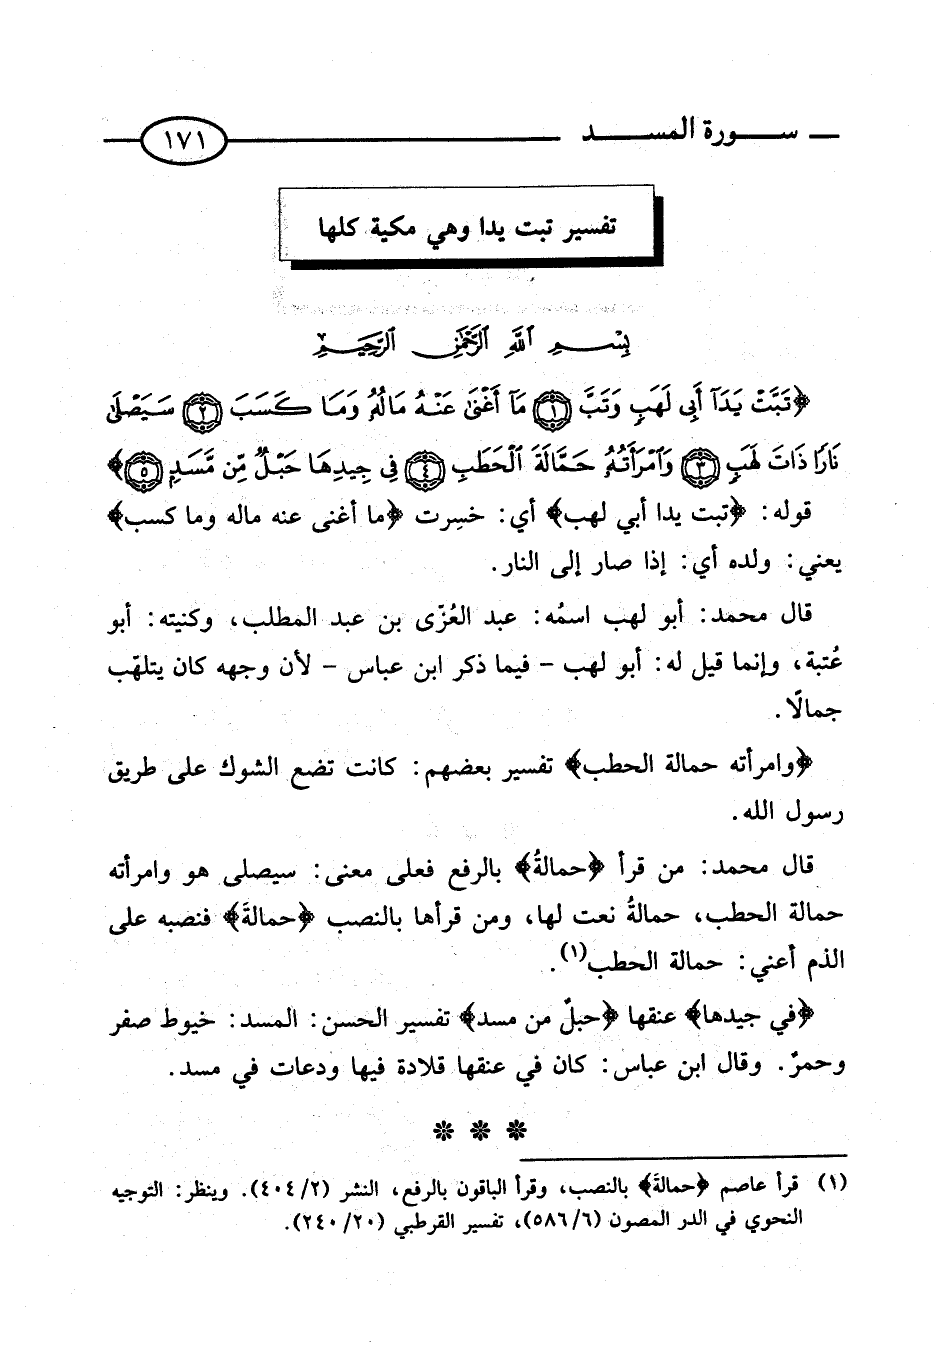 سورة المسد ١٧١
تفسير تبت يدا وهي مكية كلها
بِسْمِ ٱللَّهِ ٱلرَّحْمَٰنِ ٱلرَّحِيمِ
﴿تَبَّتْ يَدَآ أَبِى لَهَبٍ وَتَبَّ ١ مَآ أَغْنَىٰ عَنْهُ مَالُهُۥ وَمَا كَسَبَ ٢ سَيَصْلَىٰ
نَارًا ذَاتَ لَهَبٍ ٣ وَٱمْرَأَتُهُۥ حَمَّالَةَ ٱلْحَطَبِ ٤ فِى جِيدِهَا حَبْلٌ مِّن مَّسَدٍۭ ٥﴾
قوله: ﴿تبت يدا أبي لهب﴾ أي: خسِرت ﴿ما أغنى عنه ماله وما كسب﴾
يعني: ولده أي: إذا صار إلى النار.
قال محمد: أبو لهب اسمُه: عبد العُزّى بن عبد المطلب، وكنيته: أبو
عُتبة، وإنما قيل له: أبو لهب – فيما ذكر ابن عباس – لأن وجهه كان يتلهّب
جمالًا.
﴿وامرأته حمالة الحطب﴾ تفسير بعضهم: كانت تضع الشوك على طريق
رسول الله.
قال محمد: من قرأ ﴿حمالةُ﴾ بالرفع فعلى معنى: سيصلى هو وامرأته
حمالة الحطب، حمالةُ نعت لها، ومن قرأها بالنصب ﴿حمالةَ﴾ فنصبه على
الذم أعني: حمالة الحطب(١).
﴿في جيدها﴾ عنقها ﴿حبلٌ من مسد﴾ تفسير الحسن: المسد: خيوط صفر
وحمرٌ. وقال ابن عباس: كان في عنقها قلادة فيها ودعات في مسد.
* * *
(١) قرأ عاصم ﴿حمالةَ﴾ بالنصب، وقرأ الباقون بالرفع، النشر (٤٠٤/٢). وينظر: التوجيه
النحوي في الدر المصون (٥٨٦/٦)، تفسير القرطبي (٢٤٠/٢٠).